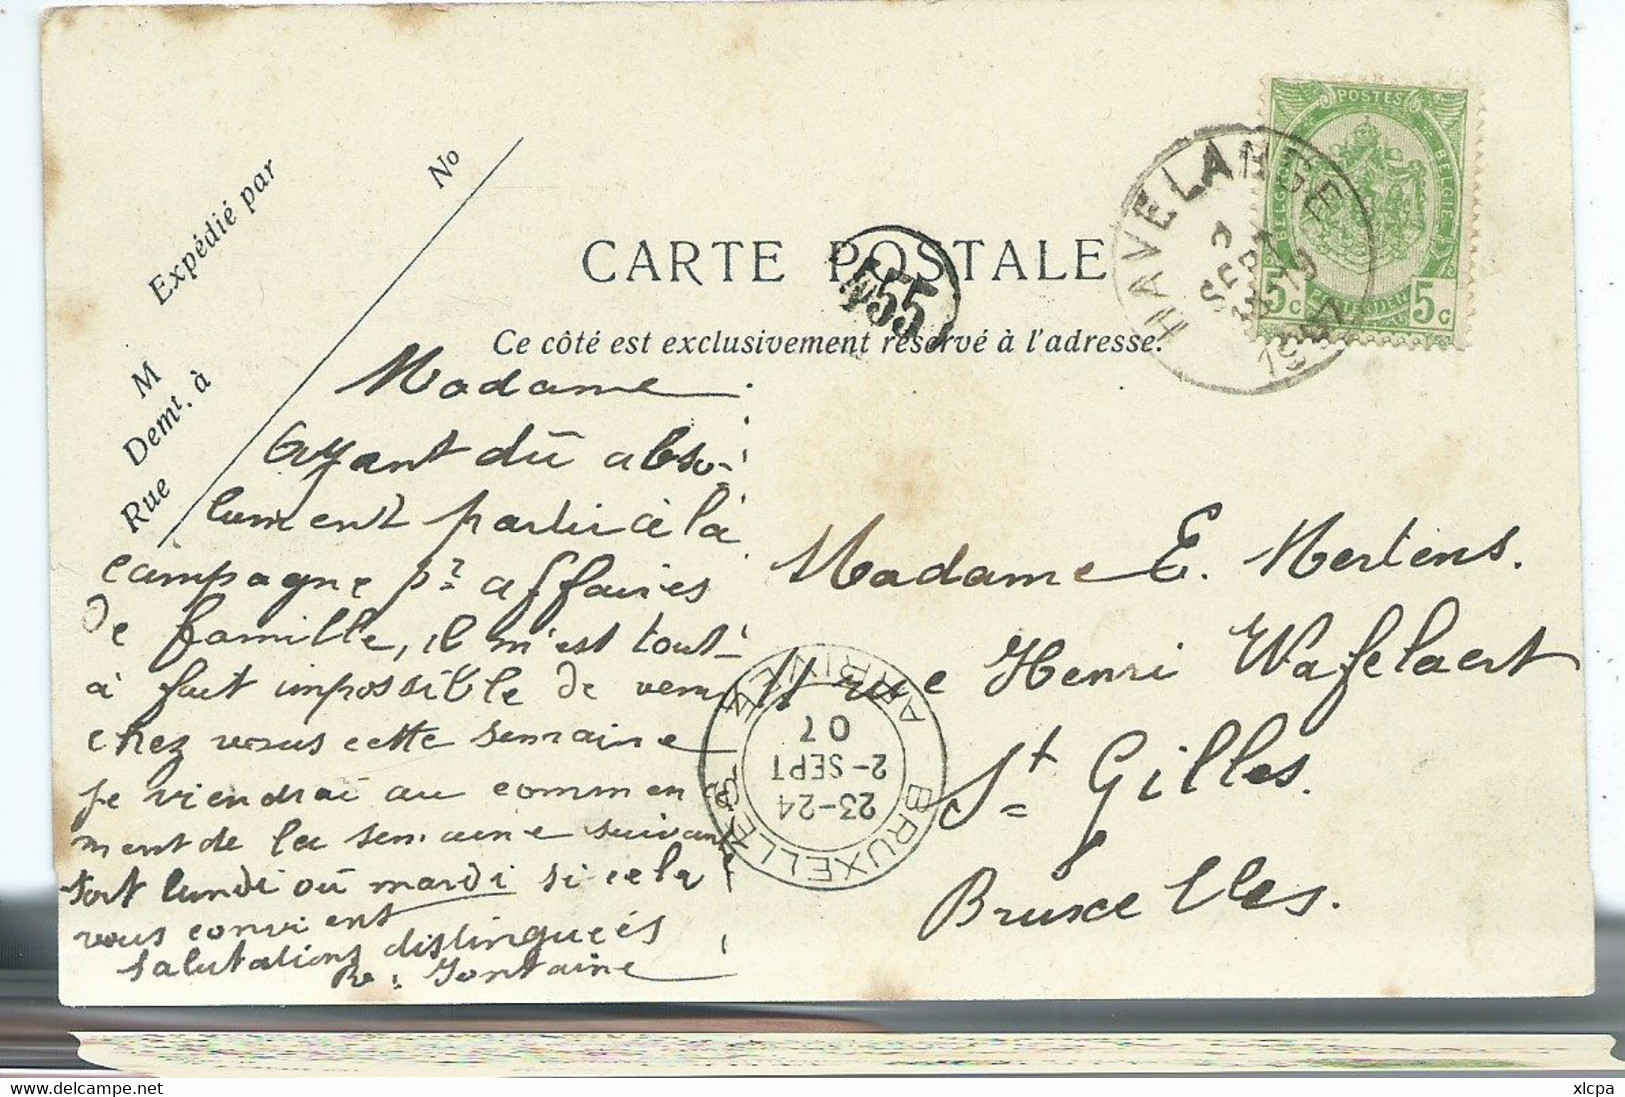 Expédié par
No
M
Demt. à
Rue
CARTE POSTALE
Ce côté est exclusivement réservé à l'adresse.
55
HAVELANGE
2
SEPT
19
POSTES
BELGIQUE
BELGIË
5c 5c
Madame
Ayant dû abso-
lument partir à la
campagne pr affaires
de famille, il m'est tout-
à fait impossible de venir
chez vous cette semaine
je viendrai au commen
ment de la semaine suivant
soit lundi ou mardi si cela
vous convient
salutations distinguées
Fontaine
Madame E. Mertens.
11 rue Henri Wafelaert
St Gilles.
Bruxelles.
BRUXELLES ARRIVÉE
23-24
2-SEPT
07
www.delcampe.net
xlcpa